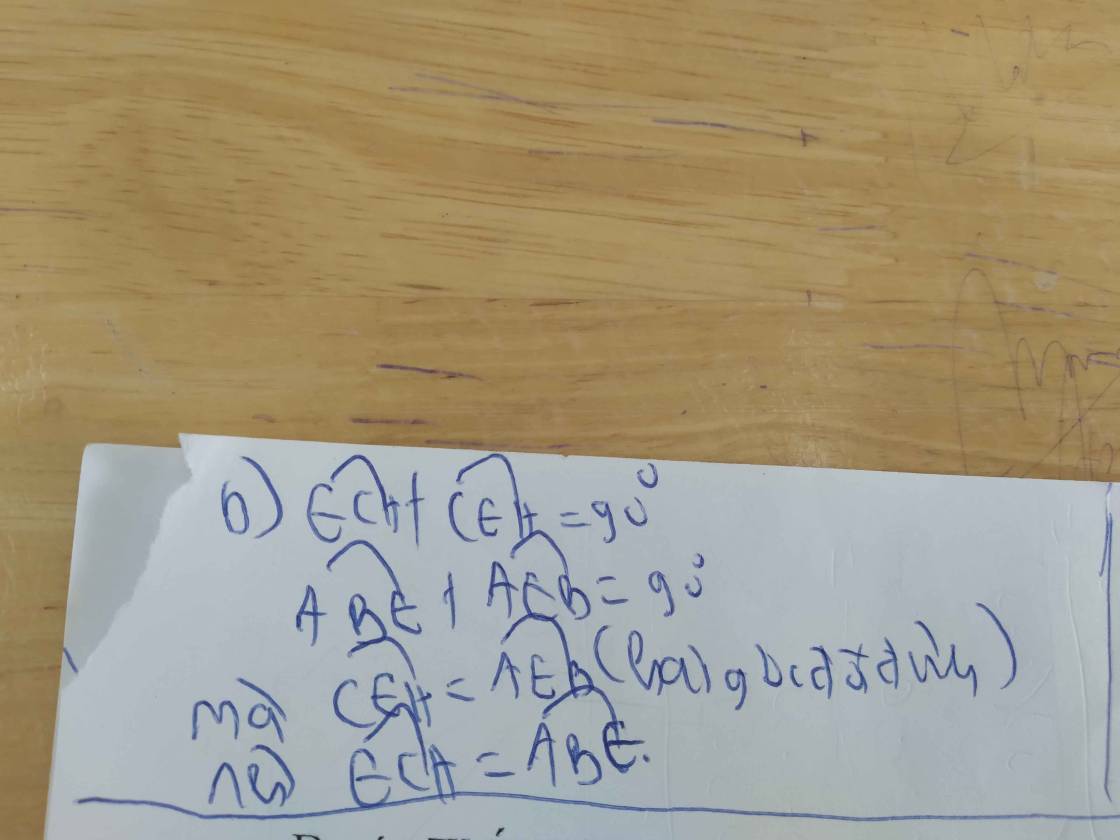 b) ECH + CEH = 90°
ABE + AEB = 90°
mà CEH = AEB (hai góc đối đỉnh)
nên ECH = ABE.